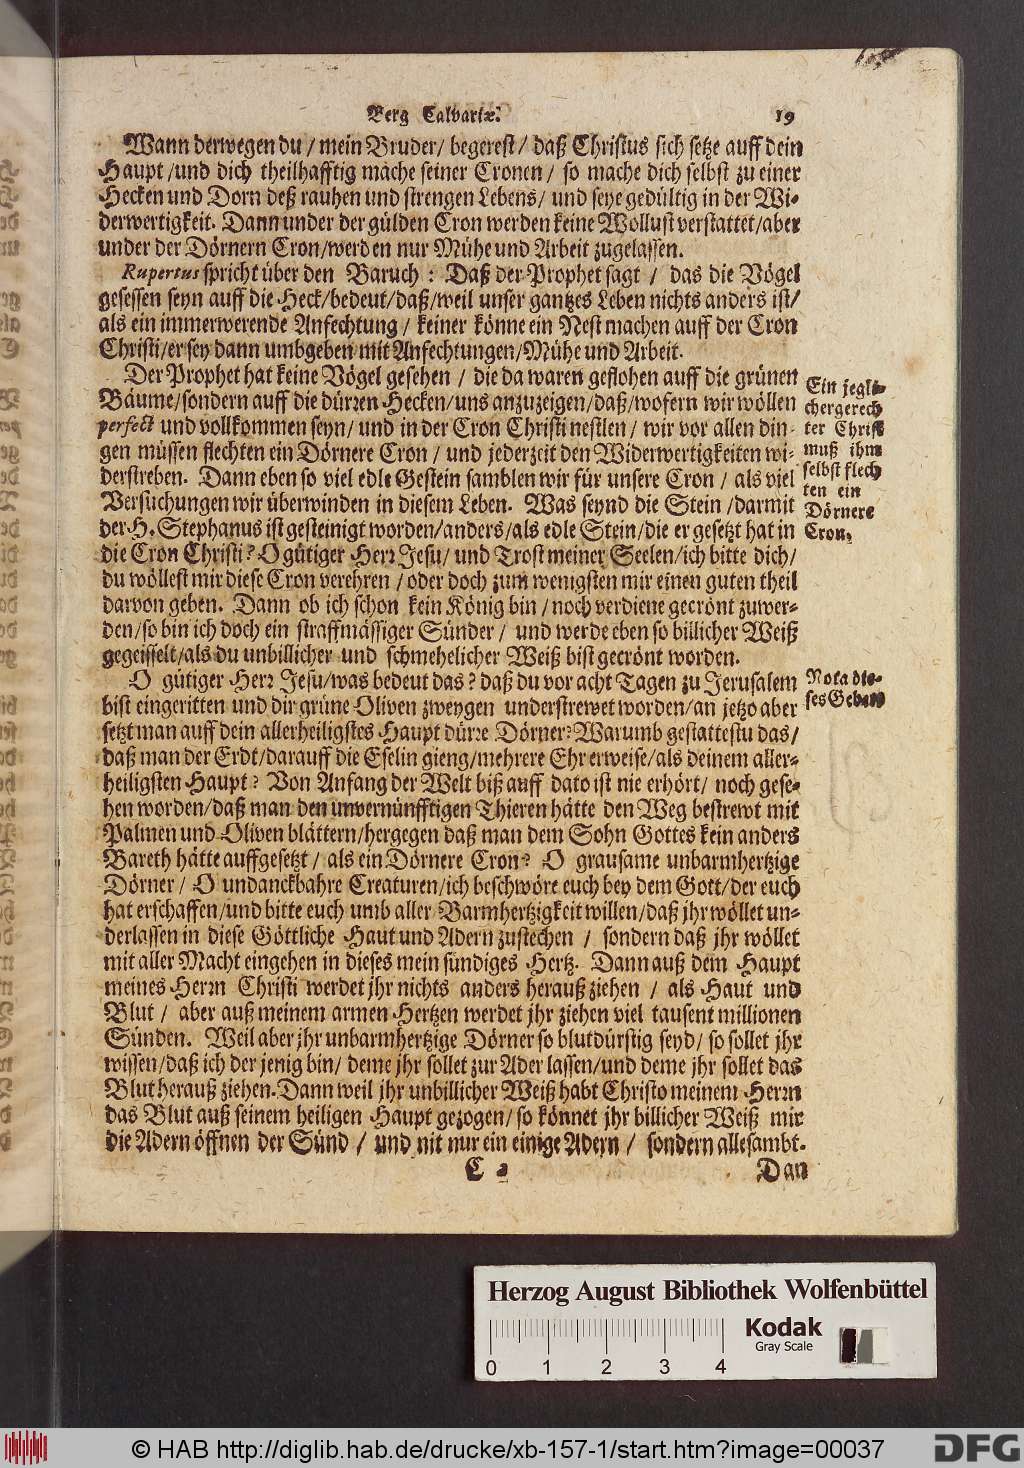 Berg Calvariæ. 19
Wann derwegen du / mein Bruder / begerest / daß Christus sich setze auff dein
Haupt / und dich theilhafftig mache seiner Cronen / so mache dich selbst zu einer
Hecken und Dorn deß rauhen und strengen Lebens / und seye gedültig in der Wi-
derwertigkeit. Dann under der gülden Cron werden keine Wollust verstattet / aber
under der Dörnern Cron / werden nur Mühe und Arbeit zugelassen.
Rupertus spricht über den Baruch: Daß der Prophet sagt / das die Vögel
gesessen seyn auff die Heck / bedeut / daß / weil unser gantzes Leben nichts anders ist /
als ein immerwerende Anfechtung / keiner könne ein Nest machen auff der Cron
Christi / er sey dann umbgeben mit Anfechtungen / Mühe und Arbeit.
Der Prophet hat keine Vögel gesehen / die da waren geflohen auff die grünen
Bäume / sondern auff die dürren Hecken / uns anzuzeigen / daß / wofern wir wöllen
perfect und vollkommen seyn / und in der Cron Christi nestlen / wir vor allen din-
gen müssen flechten ein Dörnere Cron / und jederzeit den Widerwertigkeiten wi-
derstreben. Dann eben so viel edle Gestein samblen wir für unsere Cron / als viel
Versuchungen wir überwinden in diesem Leben. Was seynd die Stein / darmit
der H. Stephanus ist gesteinigt worden / anders / als edle Stein / die er gesetzt hat in
die Cron Christi? O gütiger Herr Jesu / und Trost meiner Seelen / ich bitte dich /
du wöllest mir diese Cron verehren / oder doch zum wenigsten mir einen guten theil
darvon geben. Dann ob ich schon kein König bin / noch verdiene gecrönt zuwer-
den / so bin ich doch ein straffmässiger Sünder / und werde eben so billicher Weiß
gegeisselt / als du unbillicher und schmehelicher Weiß bist gecrönt worden.
O gütiger Herr Jesu / was bedeut das? daß du vor acht Tagen zu Jerusalem
bist eingeritten und dir grüne Oliven zweygen understrewet worden / an jetzo aber
setzt man auff dein allerheiligstes Haupt dürre Dörner? Warumb gestattestu das /
daß man der Erdt / darauff die Eselin gieng / mehrere Ehr erweise / als deinem aller-
heiligsten Haupt? Von Anfang der Welt biß auff dato ist nie erhört / noch gese-
hen worden / daß man den unvernünfftigen Thieren hätte den Weg bestrewt mit
Palmen und Oliven blättern / hergegen daß man dem Sohn Gottes kein anders
Bareth hätte auffgesetzt / als ein Dörnere Cron? O grausame unbarmhertzige
Dörner / O undanckbahre Creaturen / ich beschwöre euch bey dem Gott / der euch
hat erschaffen / und bitte euch umb aller Barmhertzigkeit willen / daß jhr wöllet un-
derlassen in diese Göttliche Haut und Adern zustechen / sondern daß jhr wöllet
mit aller Macht eingehen in dieses mein sündiges Hertz. Dann auß dem Haupt
meines Herrn Christi werdet jhr nichts anders herauß ziehen / als Haut und
Blut / aber auß meinem armen Hertzen werdet jhr ziehen viel tausent millionen
Sünden. Weil aber jhr unbarmhertzige Dörner so blutdürstig seyd / so sollet jhr
wissen / daß ich der jenig bin / deme jhr sollet zur Ader lassen / und deme jhr sollet das
Blut herauß ziehen. Dann weil jhr unbillicher Weiß habt Christo meinem Herrn
das Blut auß seinem heiligen Haupt gezogen / so könnet jhr billicher Weiß mir
die Adern öffnen der Sünd / und nit nur ein einige Adern / sondern allesambt.
C 2 Dan
Ein jegli-
cher gerech
ter Christ
muß ihm
selbst flech
ten ein
Dörnere
Cron.
Nota die-
ses Gebett
Herzog August Bibliothek Wolfenbüttel
0 1 2 3 4
Kodak
Gray Scale
© HAB http://diglib.hab.de/drucke/xb-157-1/start.htm?image=00037
DFG